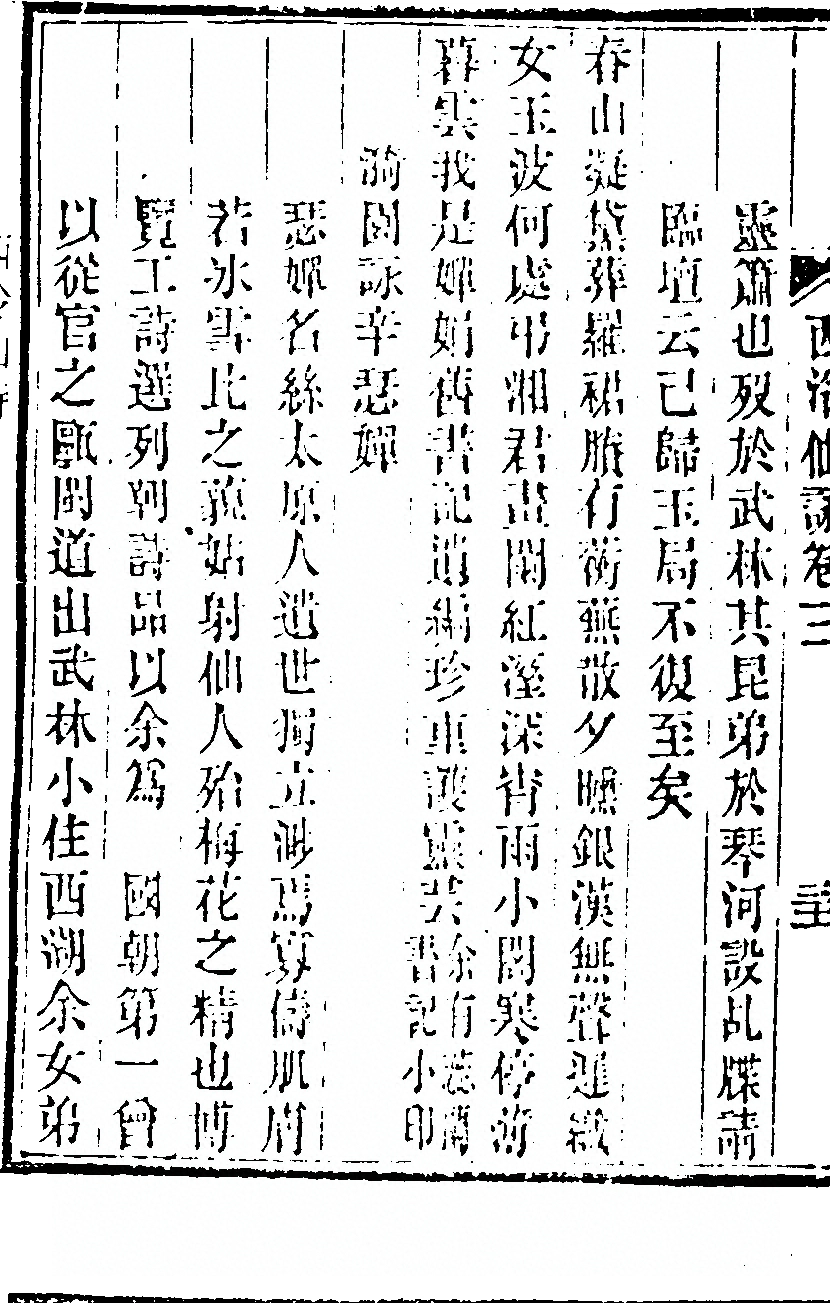 西泠仙詠卷三
靈簫也歿於武林其昆弟於琴河設乩牒請
臨壇云已歸玉局不復至矣
春山凝黛葬羅裙腸有蘅蕪散夕曛銀漢無聲運織
女玉波何處弔湘君畫闌紅溼深宵雨小閣寒停薄
暮雲我是嬋娟舊書記遺編珍重護靈芸余有蕊蘭書記小印
漪園詠辛瑟嬋
瑟嬋名絲太原人遺世獨立渺焉寡儔肌膚
若冰雪比之藐姑射仙人殆梅花之精也博
覽工詩選列朝詩品以余為 國朝第一曾
以從官之甌閩道出武林小住西湖余女弟